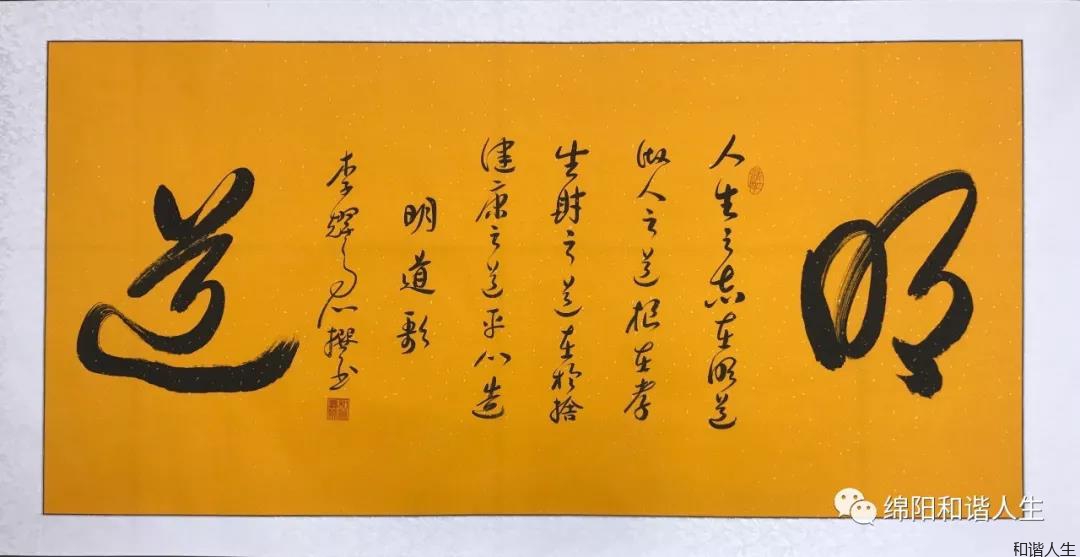 明
人生之志在明道
做人之道根在孝
生財之道在於捨
健康之道平心造
明道歌
李耀心撰书
道
绵阳和谐人生
和谐人生